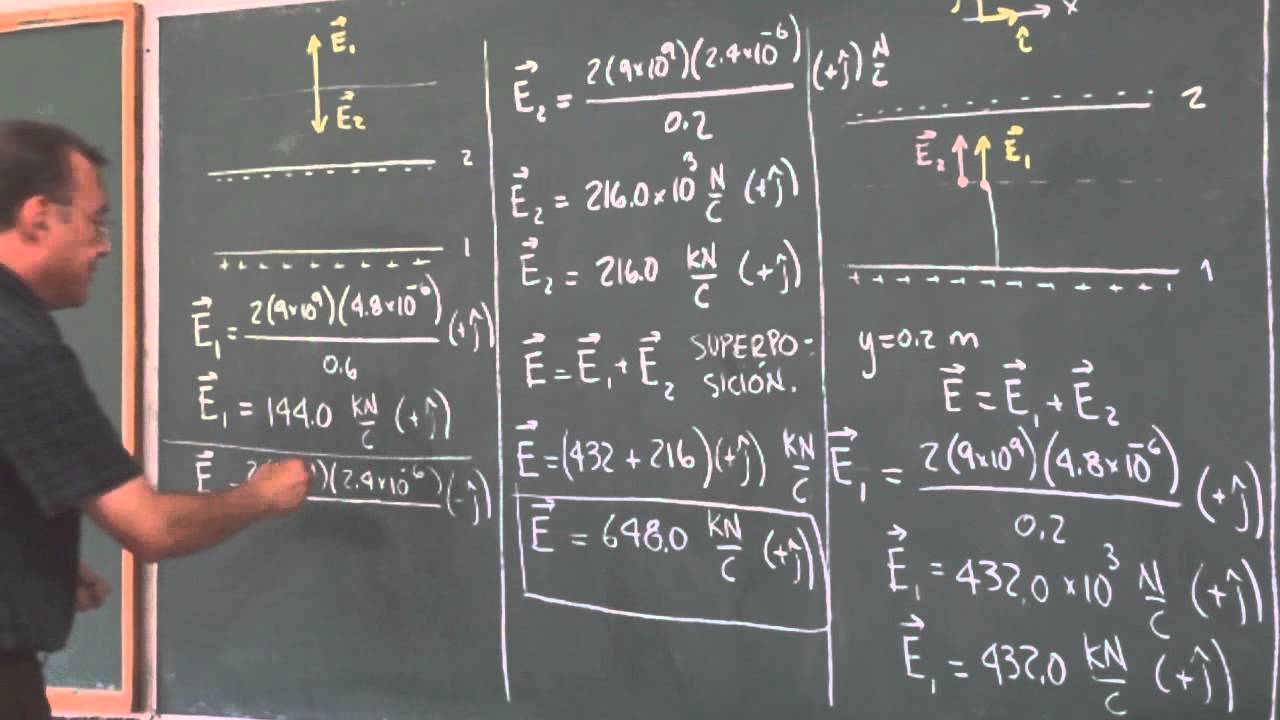 E⃗₁
E⃗₂
2
1
+ + + + + + + + +
E⃗₁ = 2(9×10⁹)(4.8×10⁻⁶) / 0.6 (+ĵ)
E⃗₁ = 144.0 KN/C (+ĵ)
E⃗ = 2( )(2.4×10⁻⁶) (-ĵ)
E⃗₂ = 2(9×10⁹)(2.4×10⁻⁶) / 0.2 (+ĵ) N/C
E⃗₂ = 216.0×10³ N/C (+ĵ)
E⃗₂ = 216.0 KN/C (+ĵ)
E⃗ = E⃗₁ + E⃗₂ SUPERPO-
SICIÓN.
E⃗ = (432 + 216)(+ĵ) KN/C
E⃗ = 648.0 KN/C (+ĵ)
x
î
2
E⃗₂ E⃗₁
1
y=0.2 m
E⃗ = E⃗₁ + E⃗₂
E⃗₁ = 2(9×10⁹)(4.8×10⁻⁶) / 0.2 (+ĵ)
E⃗₁ = 432.0×10³ N/C (+ĵ)
E⃗₁ = 432.0 KN/C (+ĵ)